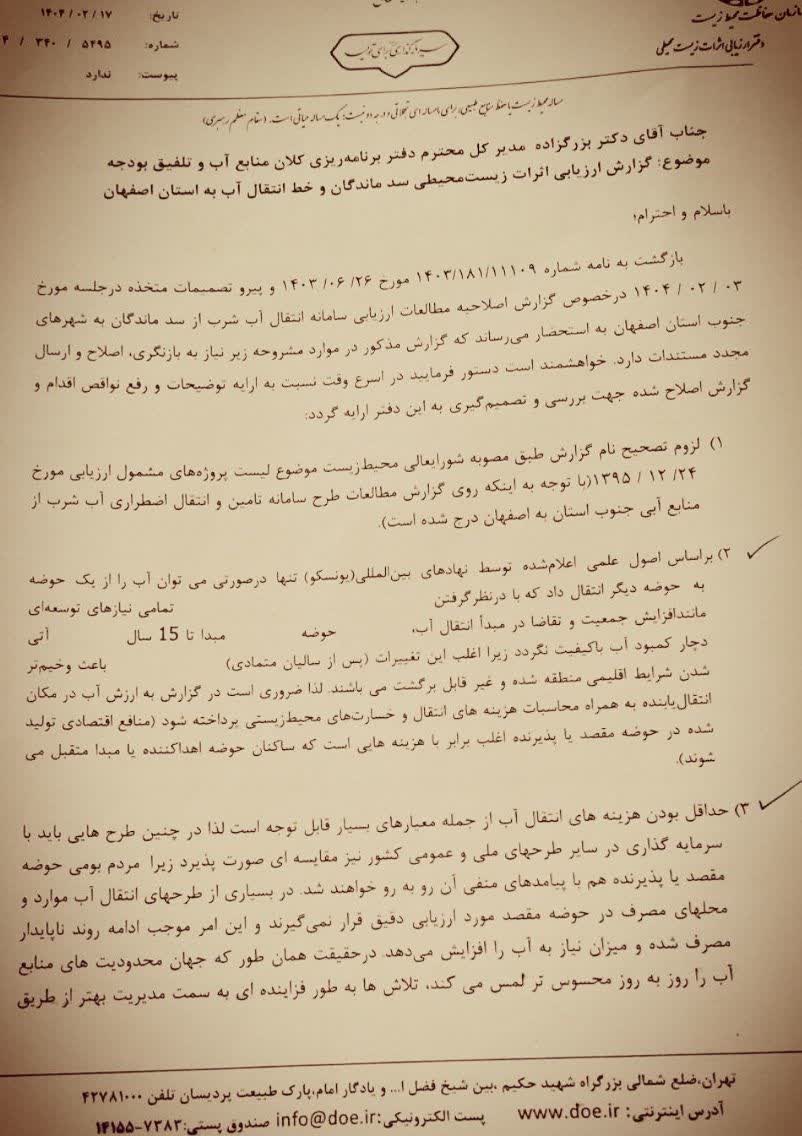 سازمان حفاظت محیط زیست
دفتر ارزیابی اثرات زیست محیطی
سرمایه‌گذاری برای تولید
تاریخ: ۱۴۰۴/۰۲/۱۷
شماره: ۵۴۹۵ / ۳۴۰ /
پیوست: ندارد
مساله محیط زیست یا حفظ منابع طبیعی، برای ما مساله ای تجملاتی و درجه دو نیست؛ یک مساله حیاتی است. (مقام معظم رهبری)
جناب آقای دکتر بزرگزاده مدیر کل محترم دفتر برنامه‌ریزی کلان منابع آب و تلفیق بودجه
موضوع: گزارش ارزیابی اثرات زیست‌محیطی سد ماندگان و خط انتقال آب به استان اصفهان
باسلام و احترام؛
بازگشت به نامه شماره ۱۴۰۳/۱۸۱/۱۱۱۰۹ مورخ ۲۶/ ۰۶/ ۱۴۰۳ و پیرو تصمیمات متخذه درجلسه مورخ
۰۳ / ۰۲ / ۱۴۰۴ درخصوص گزارش اصلاحیه مطالعات ارزیابی سامانه انتقال آب شرب از سد ماندگان به شهرهای
جنوب استان اصفهان به استحضار می‌رساند که گزارش مذکور در موارد مشروحه زیر نیاز به بازنگری، اصلاح و ارسال
مجدد مستندات دارد. خواهشمند است دستور فرمایید در اسرع وقت نسبت به ارایه توضیحات و رفع نواقص اقدام و
گزارش اصلاح شده جهت بررسی و تصمیم‌گیری به این دفتر ارایه گردد:
۱) لزوم تصحیح نام گزارش طبق مصوبه شورایعالی محیط‌زیست موضوع لیست پروژه‌های مشمول ارزیابی مورخ
۲۴/ ۱۲ / ۱۳۹۵(با توجه به اینکه روی گزارش مطالعات طرح سامانه تامین و انتقال اضطراری آب شرب از
منابع آبی جنوب استان به اصفهان درج شده است).
۲) براساس اصول علمی اعلام‌شده توسط نهادهای بین‌المللی(یونسکو) تنها درصورتی می توان آب را از یک حوضه
به حوضه دیگر انتقال داد که با درنظرگرفتن تمامی نیازهای توسعه‌ای
مانندافزایش جمعیت و تقاضا در مبدأ انتقال آب، حوضه مبدا تا 15 سال آتی
دچار کمبود آب باکیفیت نگردد زیرا اغلب این تغییرات (پس از سالیان متمادی) باعث وخیم‌تر
شدن شرایط اقلیمی منطقه شده و غیر قابل برگشت می باشند. لذا ضروری است در گزارش به ارزش آب در مکان
انتقال‌یابنده به همراه محاسبات هزینه های انتقال و خسارت‌های محیط‌زیستی پرداخته شود (منافع اقتصادی تولید
شده در حوضه مقصد یا پذیرنده اغلب برابر با هزینه هایی است که ساکنان حوضه اهداکننده یا مبدا متقبل می
شوند).
۳) حداقل بودن هزینه های انتقال آب از جمله معیارهای بسیار قابل توجه است لذا در چنین طرح هایی باید با
سرمایه گذاری در سایر طرحهای ملی و عمومی کشور نیز مقایسه ای صورت پذیرد زیرا مردم بومی حوضه
مقصد یا پذیرنده هم با پیامدهای منفی آن رو به رو خواهند شد. در بسیاری از طرحهای انتقال آب موارد و
محلهای مصرف در حوضه مقصد مورد ارزیابی دقیق قرار نمی‌گیرند و این امر موجب ادامه روند ناپایدار
مصرف شده و میزان نیاز به آب را افزایش می‌دهد. درحقیقت همان طور که جهان محدودیت های منابع
آب را روز به روز محسوس تر لمس می کند، تلاش ها به طور فزاینده ای به سمت مدیریت بهتر از طریق
تهران،ضلع شمالی بزرگراه شهید حکیم ،بین شیخ فضل ا... و یادگار امام،پارک طبیعت پردیسان تلفن ۴۲۷۸۱۰۰۰
آدرس اینترنتی: www.doe.ir پست الکترونیکی:info@doe.ir صندوق پستی:۷۳۸۳-۱۴۱۵۵